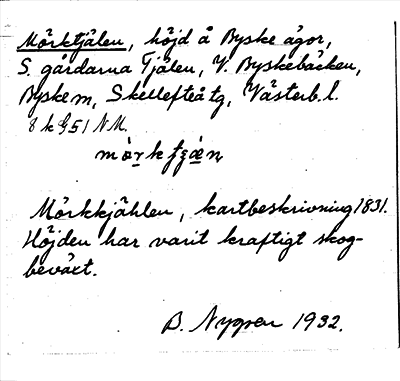 Mörktjälen, höjd å Byske ägor,
S. gårdarna Tjälen, V. Byskebäcken,
Byske m, Skellefteå tg, Västerb.l.
8 k G51 NM.
Mörkkjählen, kartbeskrivning 1831.
Höjden har varit kraftigt skog-
beväxt.
B. Nygren 1932.